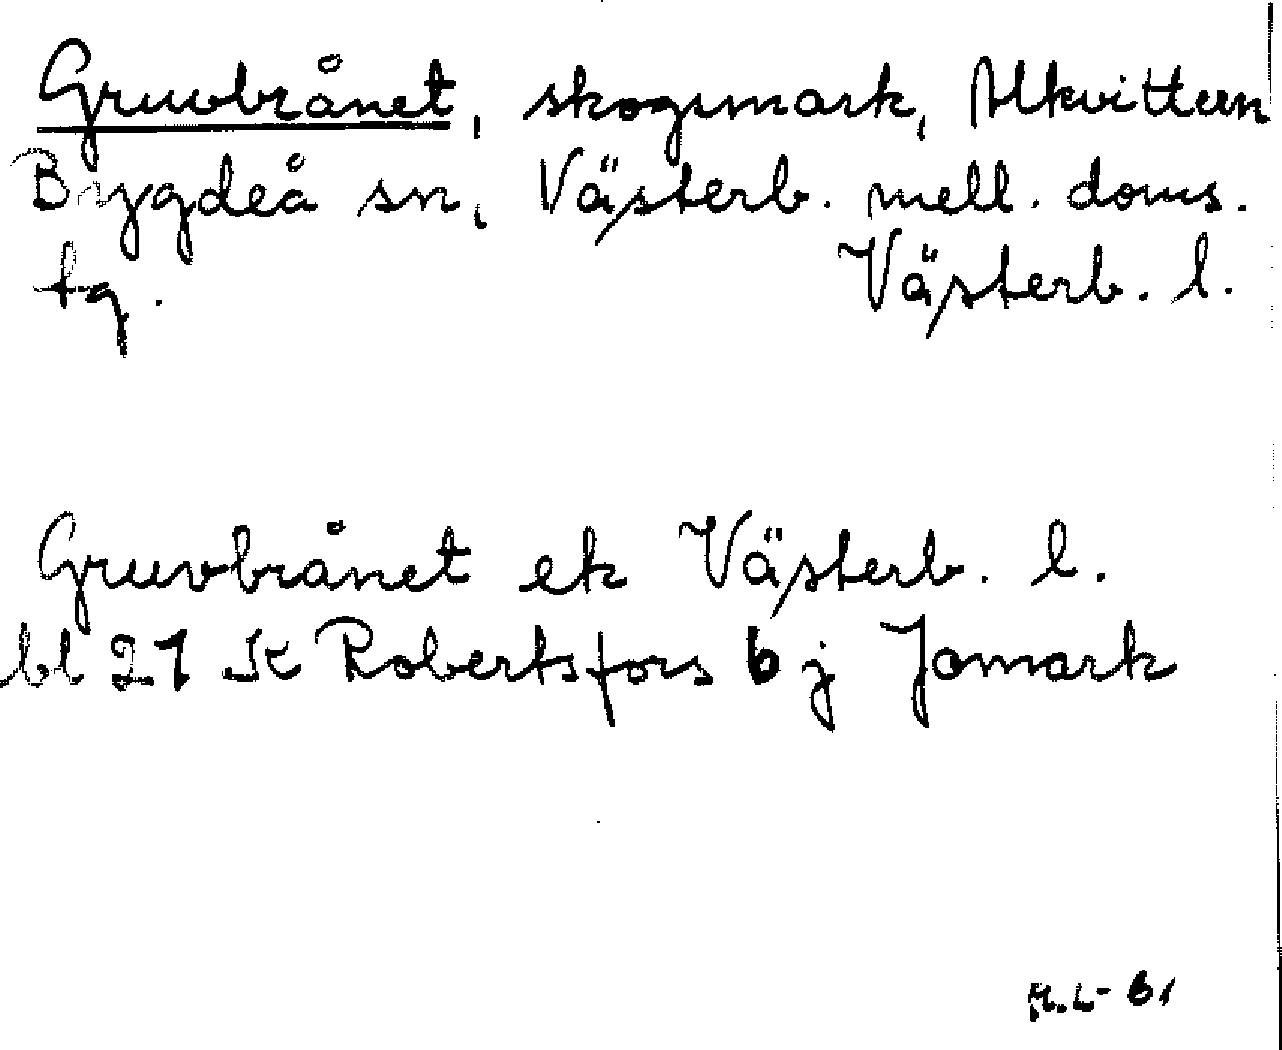 Gruvbrånet, skogsmark, Alkvittern
Bygdeå sn, Västerb. mell. doms.
tg. Västerb. l.
Gruvbrånet ek Västerb. l.
bl 21 K Robertsfors 6 j Jomark
M.L- 61